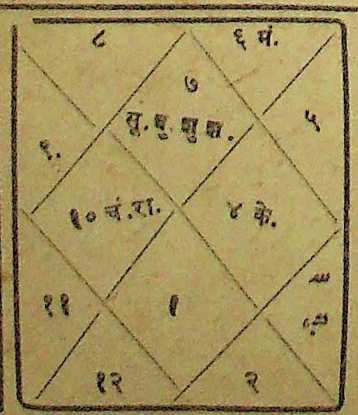 ८ ६ मं.
७
सू. बु. शु श.
९. ५
१० चं.रा. ४ के.
११ १
१२ २